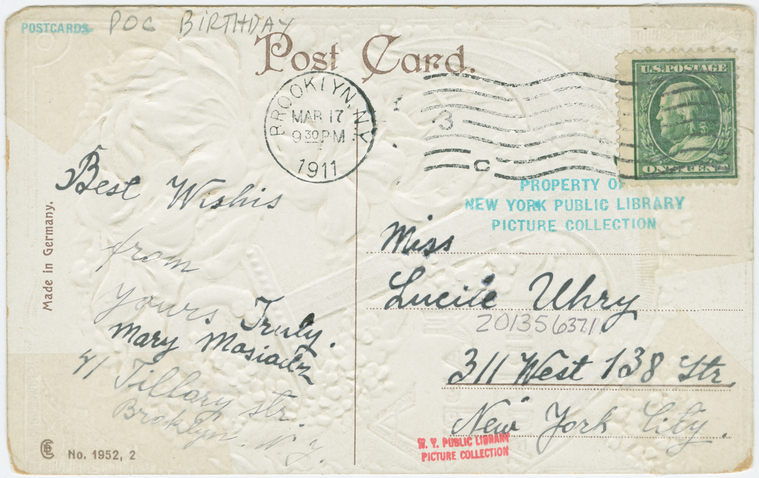 POSTCARDS
POC BIRTHDAY
Post Card.
BROOKLYN, N.Y.
MAR 17
9 30 PM
1911
3
C
U.S. POSTAGE
ONE CENT
PROPERTY OF
NEW YORK PUBLIC LIBRARY
PICTURE COLLECTION
Made in Germany.
Best Wishis
from
Yours Truly.
Mary
41 Tillary Str.
Broklyn. N.Y.
Miss
Lucile Uhry
201356371
311 West 138 Str.
New York City.
N. Y. PUBLIC LIBRARY
PICTURE COLLECTION
No. 1952, 2